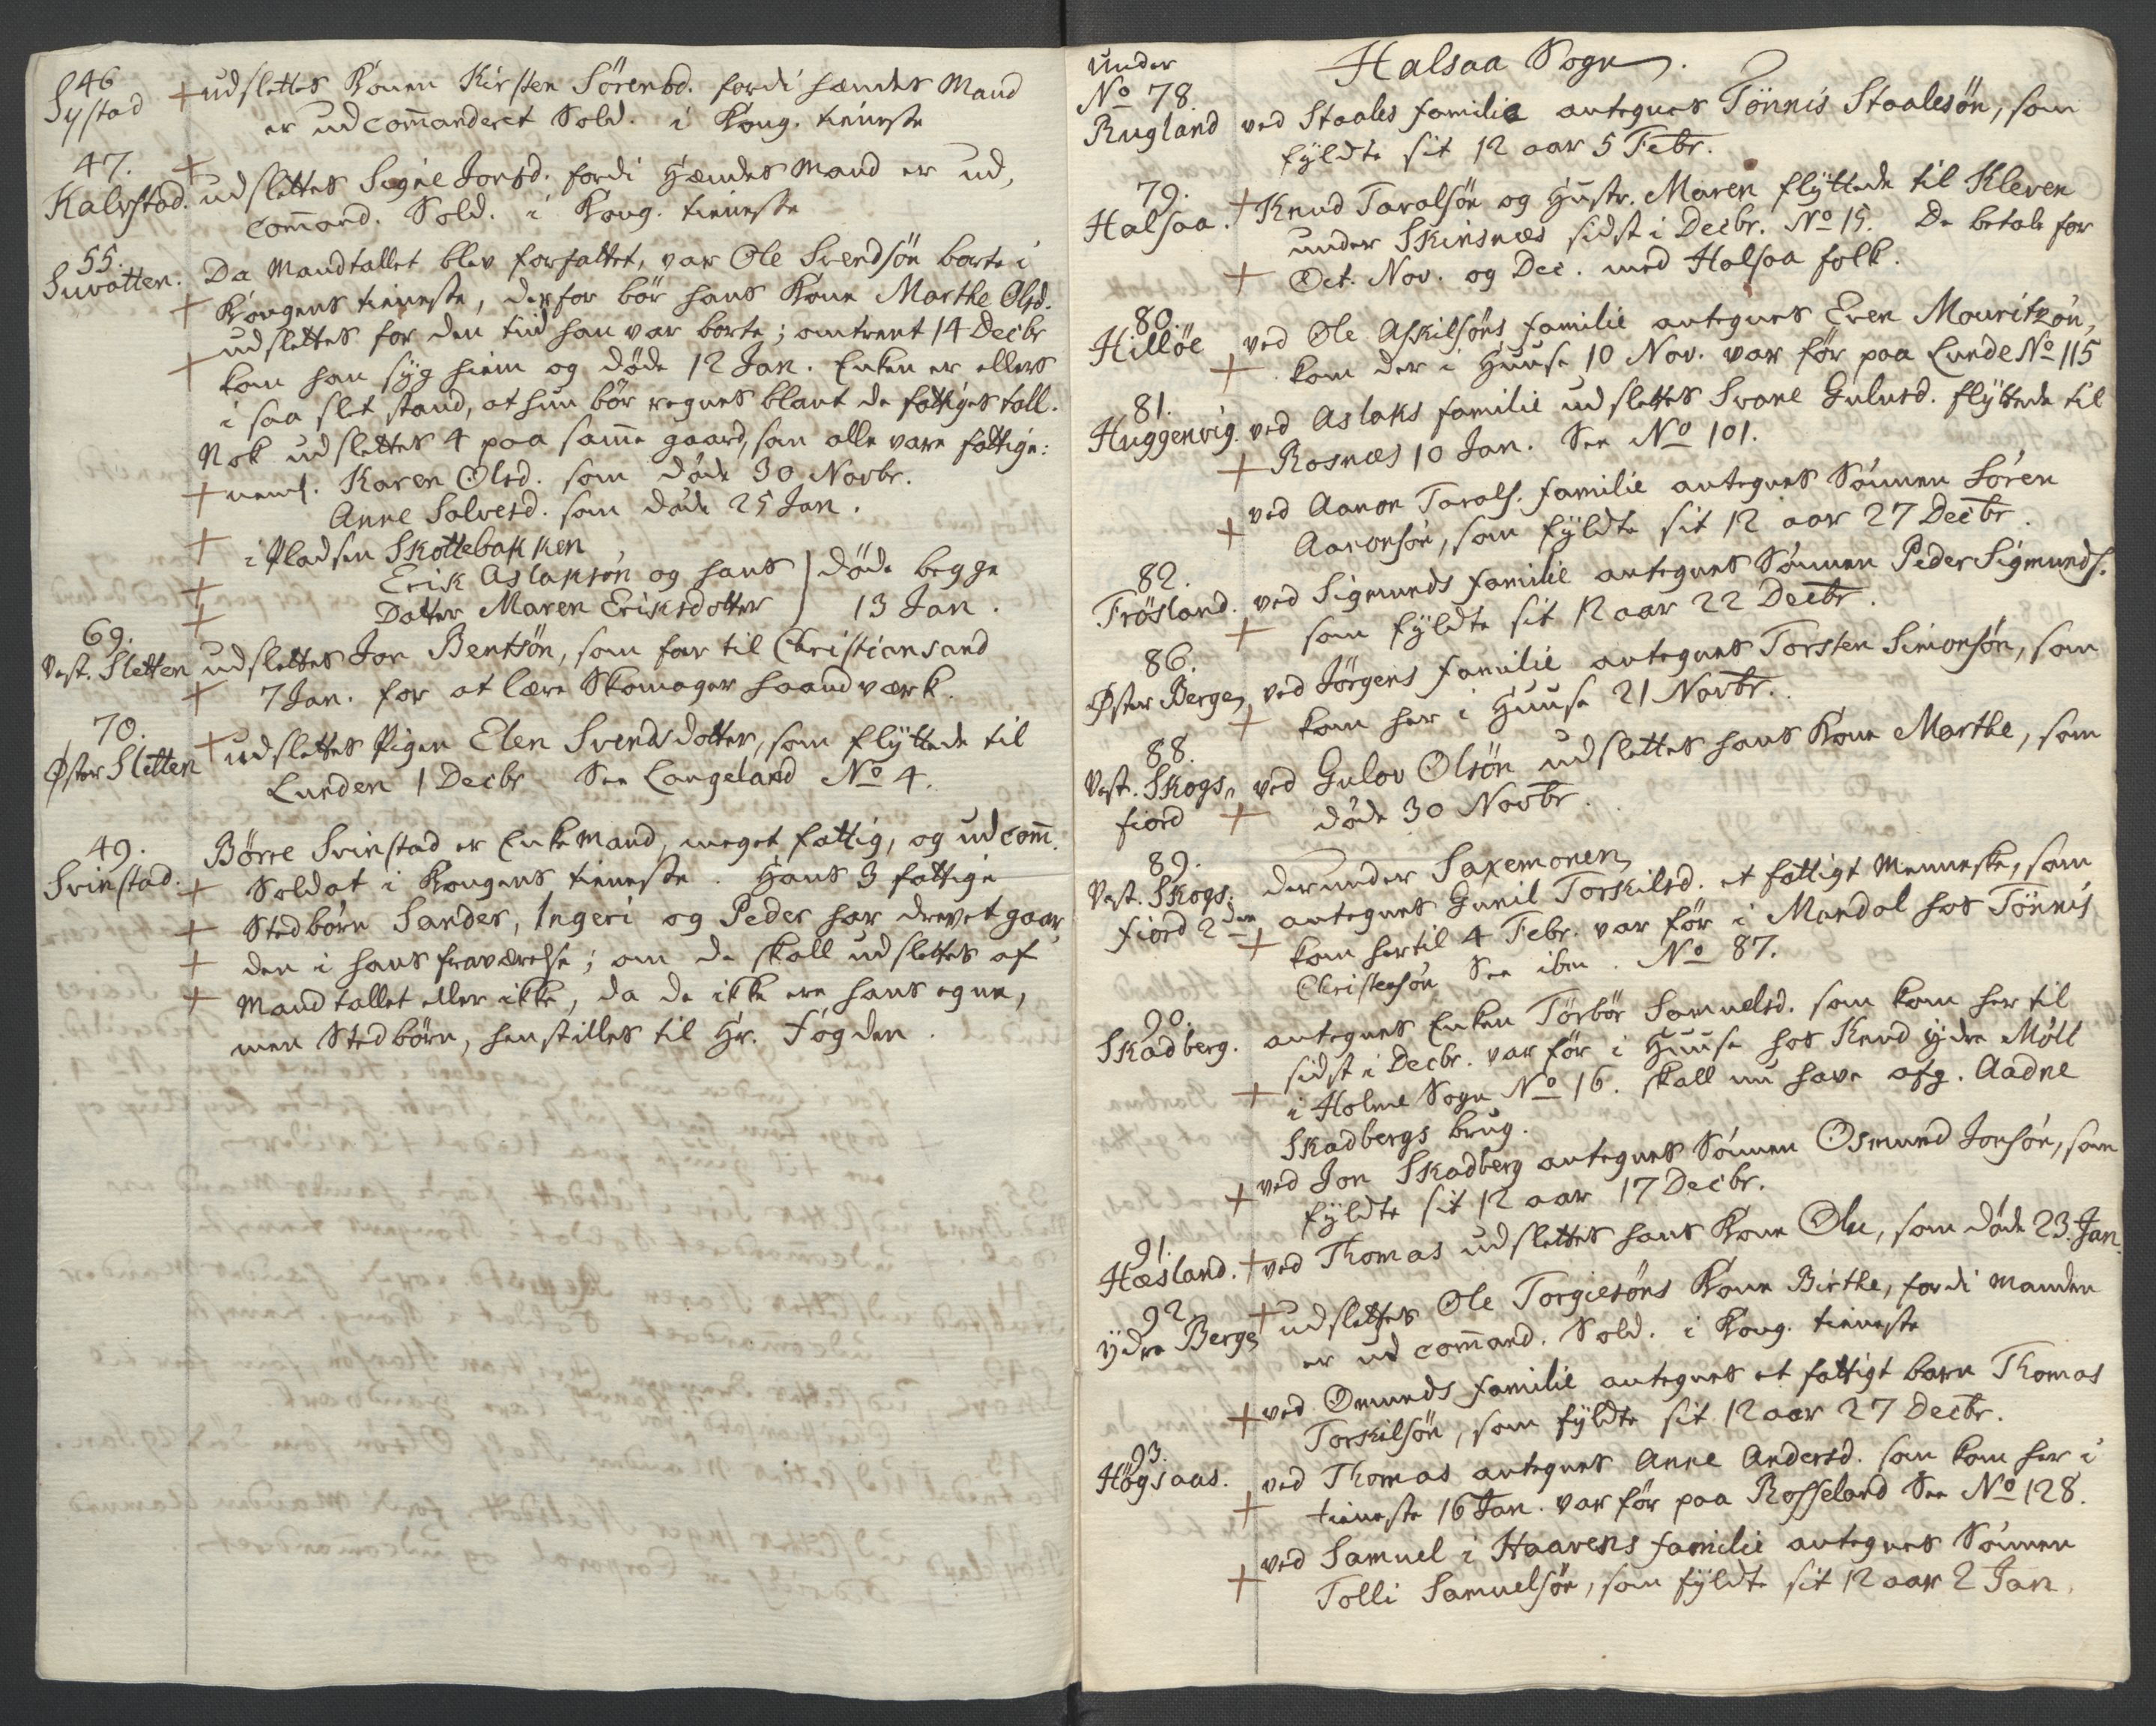 46
Systad + udslettes Konen Kirsten Sörensd. fordi hendes Mand
er udcom̄anderet Sold. i Kong. tieneste
47. +
Kalvstad. udslettes Signe Jonsd. fordi Hendes Mand er ud,
com̄and. Sold. i Kong. tieneste
55.
Suvatten. Da Mandtallet blev forfattet, var Ole Svendsön borte i
+ Kongens tieneste, derfor bör hans Kone Marthe Olsd.
udslettes for den tiid han var borte; omtrent 14 Decbr
+ kom han syg hiem og döde 12 Jan. Enken er ellers
i saa slet stand, at hun bör regnes blant de fattiges tall.
Nok udslettes 4 paa sam̄e gaard, som alle vare fattige:
+ neml. Karen Olsd. som döde 30 Novbr.
Anne Salvesd. som döde 25 Jan.
+ i Pladsen Skottebakken
+ Erik Aslaksön og hans } döde begge
+ Datter Maren Eriksdotter } 13 Jan.
69.
Vest. Sletten udslettes Jon Bentsön, som for til Christiansand
+ 7 Jan. for at lære Skomager haandværk.
70.
Öster Sletten + udslettes Pigen Elen Svendsdotter, som flyttede til
Lunden 1 Decbr See Langeland No 4.
49.
Svinstad. Börre Svinstad er Enkemand, meget fattig, og udcom̄.
+ Soldat i Kongens tieneste. Hans 3 fattige
+ Stedbörn Sander, Ingeri og Peder har drevet gaar
+ den i hans fraværelse; om de skall udslettes af
+ Mandtallet eller ikke, da de ikke ere hans egne,
men Stedbörn, henstilles til Hr. Fogden.
under
Halsaa Sogn.
No 78.
Rugland ved Staales familie antegnes Tönnis Staalesön, som
fyldte sit 12 aar 5 Febr.
79.
Halsaa. + Knud Taralsön og Hustr. Maren flyttede til Kleven
under Skinsnæs sidst i Decbr. No 15. De betale for
+ Oct. Nov. og Dec. med Halsaa folk.
80.
Hilløe ved Ole Askilsöns familie antegnes Even Mouritzön,
+ kom der i Huuse 10 Nov. var för paa Lunde No 115
81.
Huggenvig. ved Aslaks familie udslettes Svane Gulusd. flyttede til
+ Rosnæs 10 Jan. See No 101.
ved Aanon Tarals. familie antegnes Sönnen Sören
+ Aanonsön, som fyldte sit 12 aar 27 Decbr.
82.
Fröisland. ved Sigmunds familie antegnes Sönnen Peder Sigmunds.
+ som fyldte sit 12 aar 22 Decbr.
86.
Öster Berge, ved Jörgens familie antegnes Torsten Simonsön, som
+ kom her i Huuse 21 Novbr.
88.
Vest. Skogs, ved Gulov Olsön udslettes hans Kone Marthe, som
fiord + döde 30 Novbr.
89. derunder Saxemonen,
Vest. Skogs. antegnes Gunil Torskilsd. et fattigt Menneske, som
fiord 2den + kom hertil 4 Febr. var för i Mandal hos Tönnis
Christensön See ibm. No 87.
90.
Skadberg. antegnes Enken Törbör Samuelsd. som kom her til
+ sidst i Decbr. var för i Huuse hos Knud Ydre Möll
i Holme Sogn No 16. skall nu have afg. Aadne
Skadbergs brug.
+ ved Jon Skadberg antegnes Sönnen Osmund Jonsön, som
fyldte sit 12 aar 17 Decbr.
91.
Hæsland. + ved Thomas udslettes hans Kone Olu, som döde 23. Jan.
92
Ydre Berge, + udslettes Ole Torgiesöns Kone Birthe, fordi Manden
er udcom̄and. Sold. i Kong. tieneste
+ ved Omunds familie antegnes et fattigt barn Thomas
Torskilsön, som fyldte sit 12 aar 27 Decbr.
93.
Högsaas. ved Thomas antegnes Anne Andersd. som kom her i
+ tieneste 16 Jan. var för paa Rosseland See No 128.
ved Samuel i Haavens familie antegnes Sönnen
+ Tolli Samuelsön, som fyldte sit 12 aar 2 Jan.